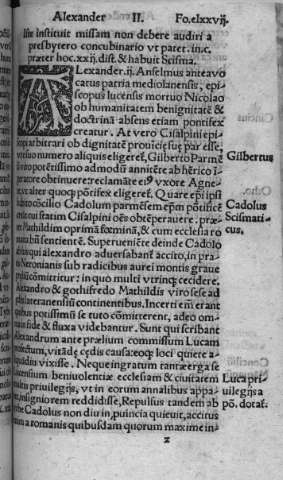 Alexander II. Fo.clxxvij.
Iste instituit missam non debere audiri a
presbytero concubinario vt pater .in.c.
præter hoc.xxij.dist.& habuit Scisma.
ALexander.ij. Anselmus antea vo
catus patria mediolanensis, epi
scopus lucensis mortuo Nicolao
ob humanitatem benignitatē &
doctrinā absens etiam pontifex
creatur. At vero Cisalpini epi
arbitrari ob dignitatē prouīcię suę par esse,
numero aliquis eligeret̃, Gilberto Parmē
Gilbertus
potētissimo admodū annitēte ab hērico I
peratore obtinuere reclamāte eiꝰ vxore Agne
alter quoq; pōtifex eligeret̃. Quare epi ipsi
cōcilio Cadolum parmēsem epm pōtificē
Cadolus
statim Cisalpini oēs obtēperauere. præ
Scismati
Mathildim oprimā fœminā, & cum ecclesia ro
cus.
bñ sentientē. Superueniēte deinde Cadolo
qui alexandro aduersabant̃ accito, in pra
Neronianis sub radicibus aurei montis graue
cōmittitur: in quo multi vtrinq; cecidere.
Alexandro & gothifredo Mathildis viro sese ad
lateranensiū continentibus. Incerti em̃ erant
quibus potissimū se tuto cōmitterent, adeo om
fide & fluxa videbantur. Sunt qui scribant
Alexandrum ante prælium commissum Lucam
profectum, vitādę cędis causa: eoq; loci quiete a
vixisse. Neque ingratum tantæ erga se
beniuolentiæ ecclesiam & ciuitatem
Luca pri
priuilegijs, vt in eorum annalibus appa
uilegijs a
insigniorem reddidisse, Repulsus tandem ab
pō. dotat̃.
Cadolus non diu in, puincia quieuit, accitus
a romanis quibusdam quorum maxime in
z